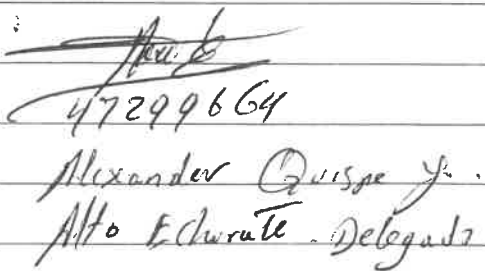 47299664
Alexander Quispe Y.
Alto Echarate. Delegado